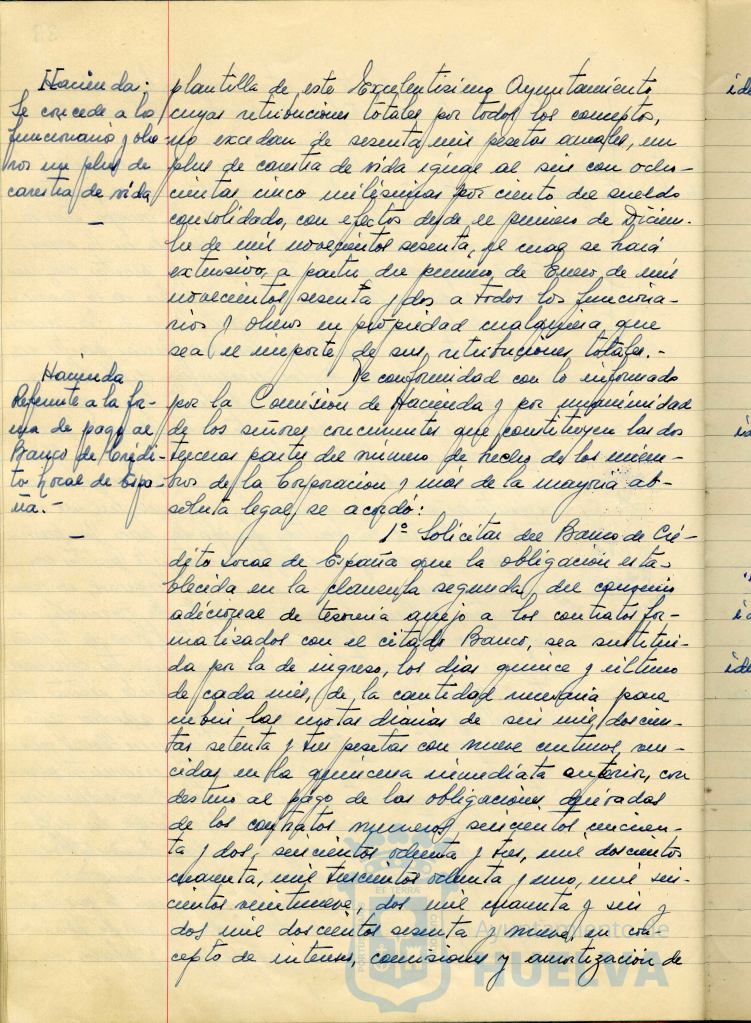 Hacienda:
Se concede a los
funcionarios y obre-
ros un plus de
carestia de vida
—
plantilla de este Excelentísimo Ayuntamiento,
cuyas retribuciones totales por todos los conceptos,
no excedan de sesenta mil pesetas anuales, un
plus de carestia de vida igual al seis con ocho-
cientas cinco milésimas por ciento del sueldo
consolidado, con efectos desde el primero de Diciem-
bre de mil novecientos sesenta, el cual se hará
extensivo, a partir del primero de Enero de mil
novecientos sesenta y dos a todos los funciona-
rios y obreros en propiedad cualquiera que
sea el importe de sus retribuciones totales.-
Hacienda
Referente a la for-
ma de pago al
Banco de Crédi-
to Local de Espa-
ña.-
—
De conformidad con lo informado
por la Comisión de Hacienda y por unanimidad
de los señores concurrentes que constituyen las dos
terceras partes del número de hecho de los miem-
bros de la Corporación y más de la mayoría ab-
soluta legal, se acordó:
1º Solicitar del Banco de Cré-
dito Local de España que la obligación esta-
blecida en la clausula segunda del convenio
adicional de tesorería anejo a los contratos for-
malizados con el citado Banco, sea sustitui-
da por la de ingreso, los días quince y último
de cada mes, de la cantidad necesaria para
cubrir las cuotas diarias de seis mil doscien-
tas setenta y tres pesetas con nueve centimos, ven-
cidas en la quincena inmediata anterior, con
destino al pago de las obligaciones derivadas
de los contratos números seiscientos cincuen-
ta y dos, seiscientos ochenta y tres, mil doscientos
cuarenta, mil trescientos ochenta y uno, mil seis-
cientos veintinueve, dos mil cuarenta y seis y
dos mil doscientos sesenta y nueve, en con-
cepto de intereses, comisiones y amortización de
Ayuntamiento de
HUELVA